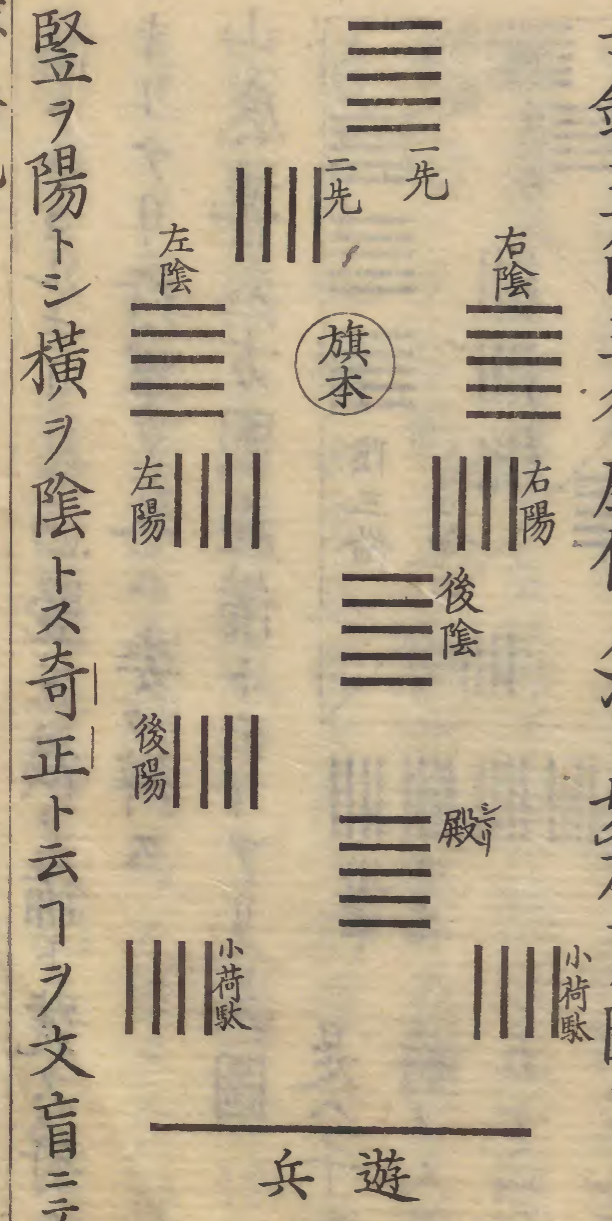 一先
二先
右陰
旗本
左陰
右陽
左陽
後陰
後陽
殿シリ
小荷駄
小荷駄
遊兵
竪ヲ陽トシ橫ヲ陰トス奇正ト云ヿヲ文盲ニテ